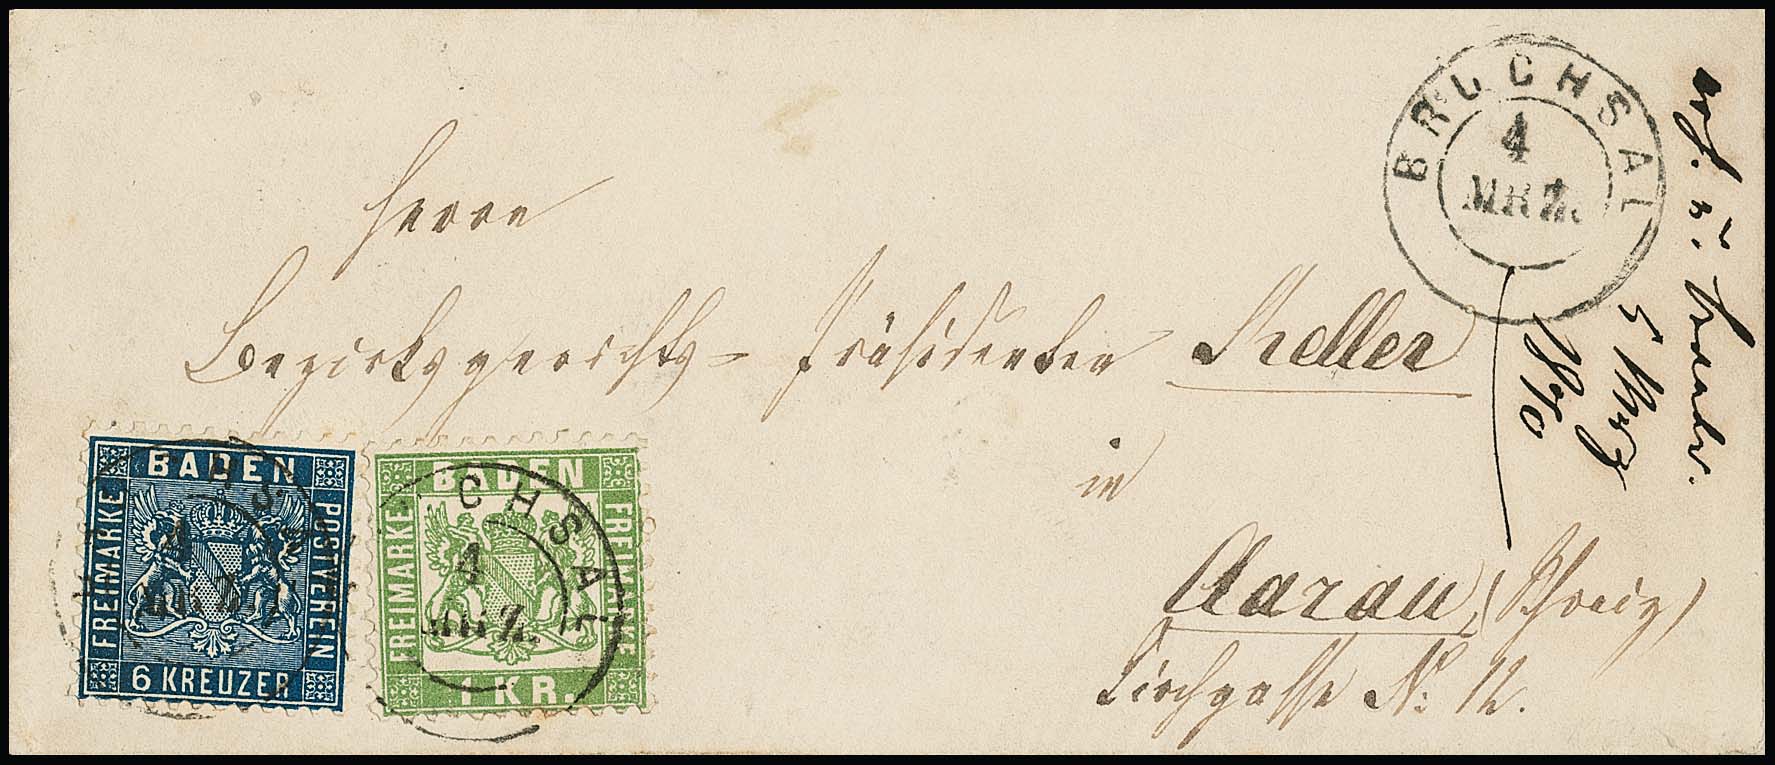 Herrn
Bezirksgerichts- Präsidenten Keller
in
Aarau, (Schweiz)
Kirchgasse No. 12.
BRUCHSAL
4
MRZ.
5 März
1870
BADEN
FREIMARKE
POSTVEREIN
6 KREUZER
BADEN
FREIMARKE
FREIMARKE
1 KR.
CHSAL
4
MRZ.